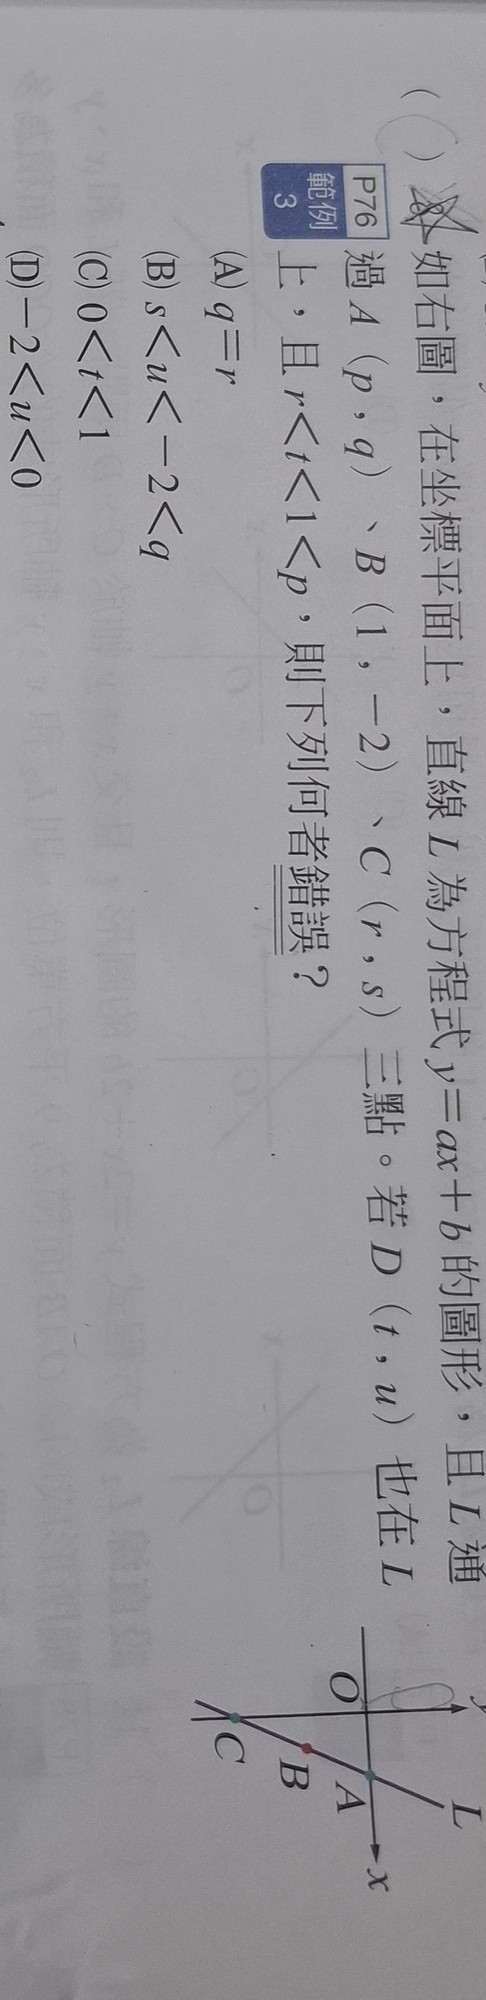 ( ) 如右圖，在坐標平面上，直線 L 為方程式 y＝ax＋b 的圖形，且 L 通
P76 過 A（p，q）、B（1，－2）、C（r，s）三點。若 D（t，u）也在 L
範例 3 上，且 r＜t＜1＜p，則下列何者錯誤？
(A) q＝r
(B) s＜u＜－2＜q
(C) 0＜t＜1
(D)－2＜u＜0
y
L
O
A
x
B
C